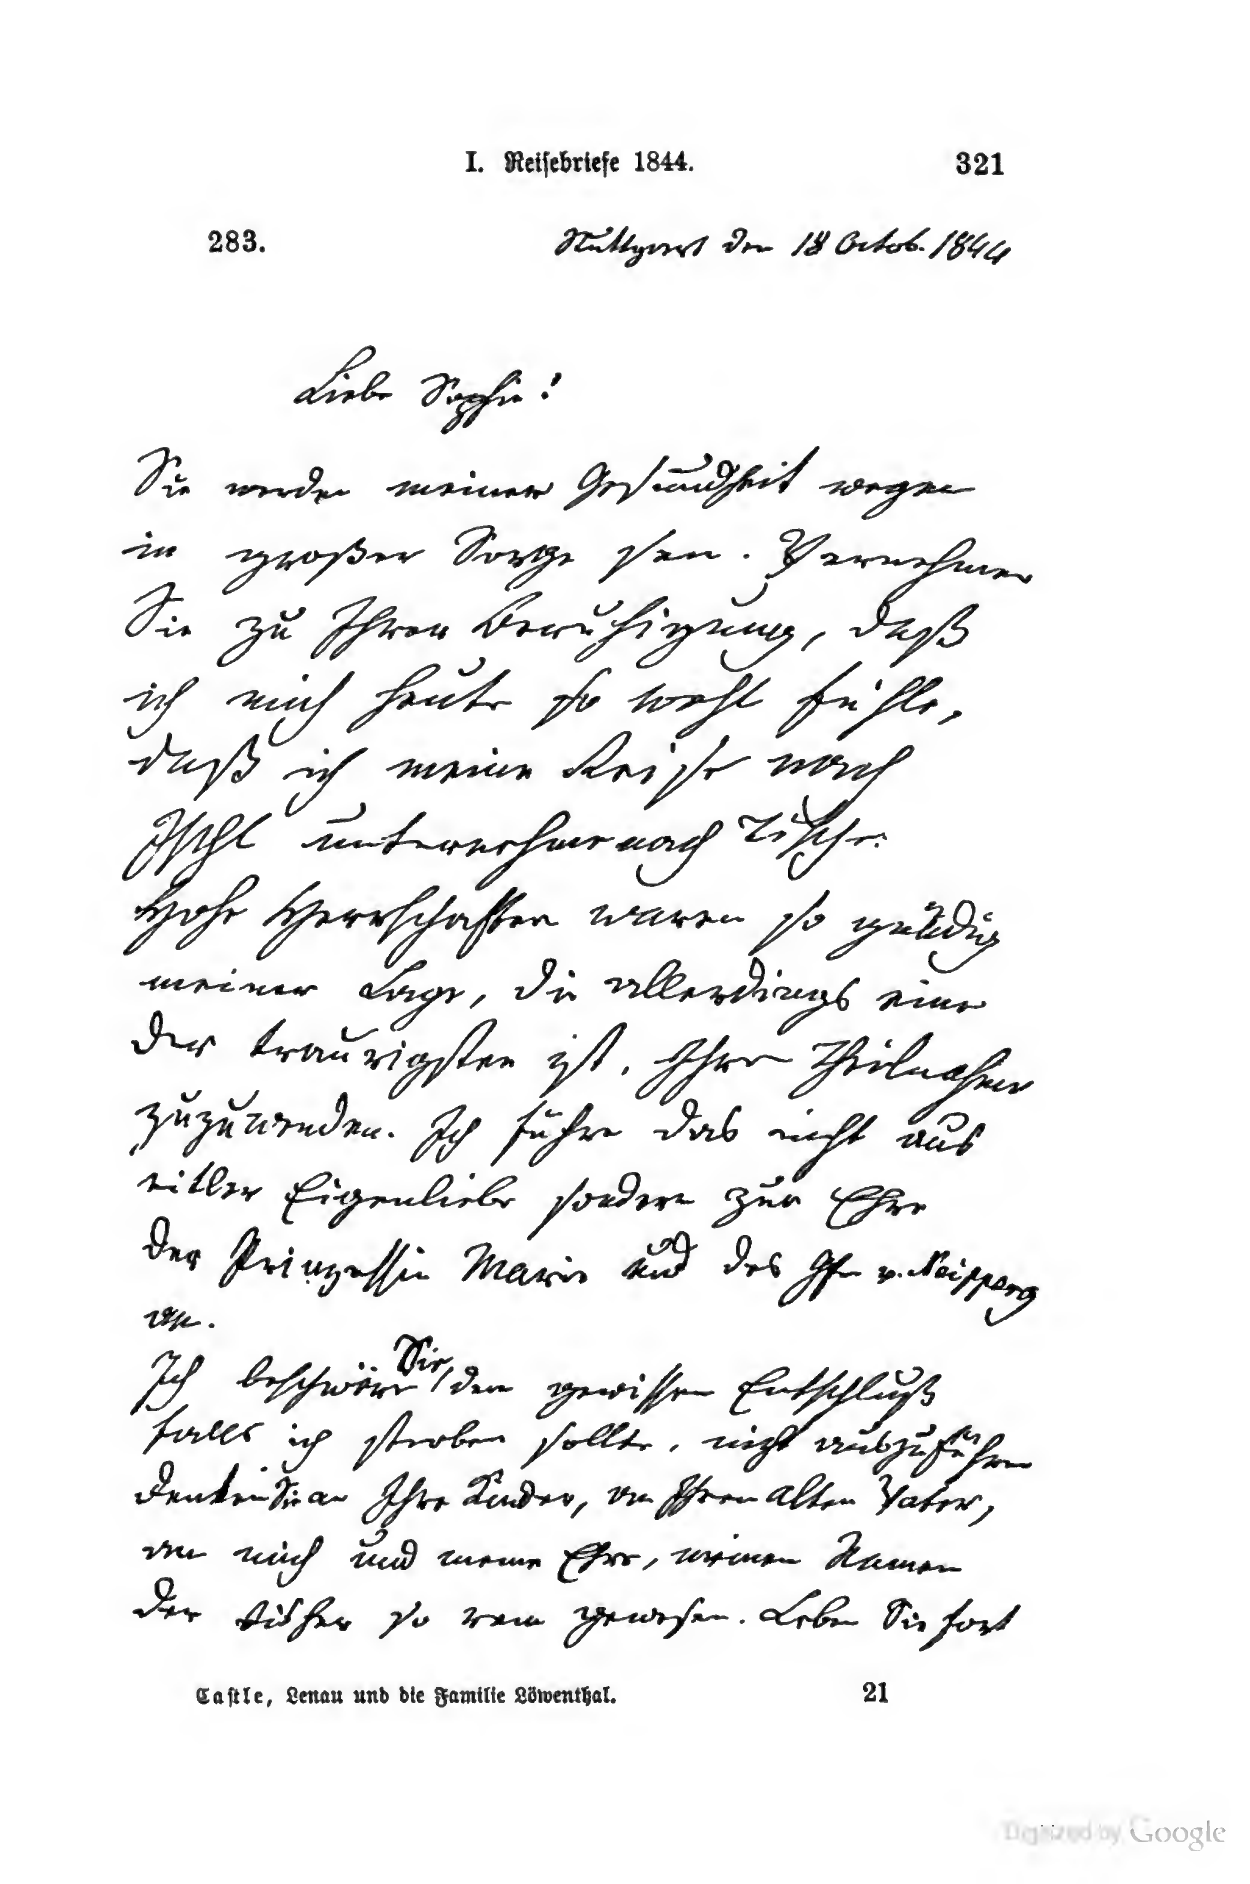 I. Reisebriefe 1844. 321
283. Stuttgart den 18 Octob. 1844
Liebe Sophie!
Sie werden meiner Gesundheit wegen
in großer Sorge sein. Vernehmen
Sie zu Ihrer Beruhigung, daß
ich mich heute so wohl fühle,
daß ich meine Reise nach
Ischl unternehme nach Tische.
Hohe Herrschaften waren so gnädig
meiner Lage, die allerdings eine
der traurigsten ist, Ihre Theilnahme
zuzuwenden. Ich führe das nicht aus
eitler Eigenliebe sondern zur Ehre
der Prinzessin Marie und des Gfn v. Neipperg
an.
Ich beschwöre Sie, den gewissen Entschluß
falls ich sterben sollte, nicht auszuführen
denken Sie an Ihre Kinder, an Ihren alten Vater,
an mich und meine Ehre, meinen Namen
der bisher so rein gewesen. Leben Sie fort
Castle, Lenau und die Familie Löwenthal. 21
Digitized by Google